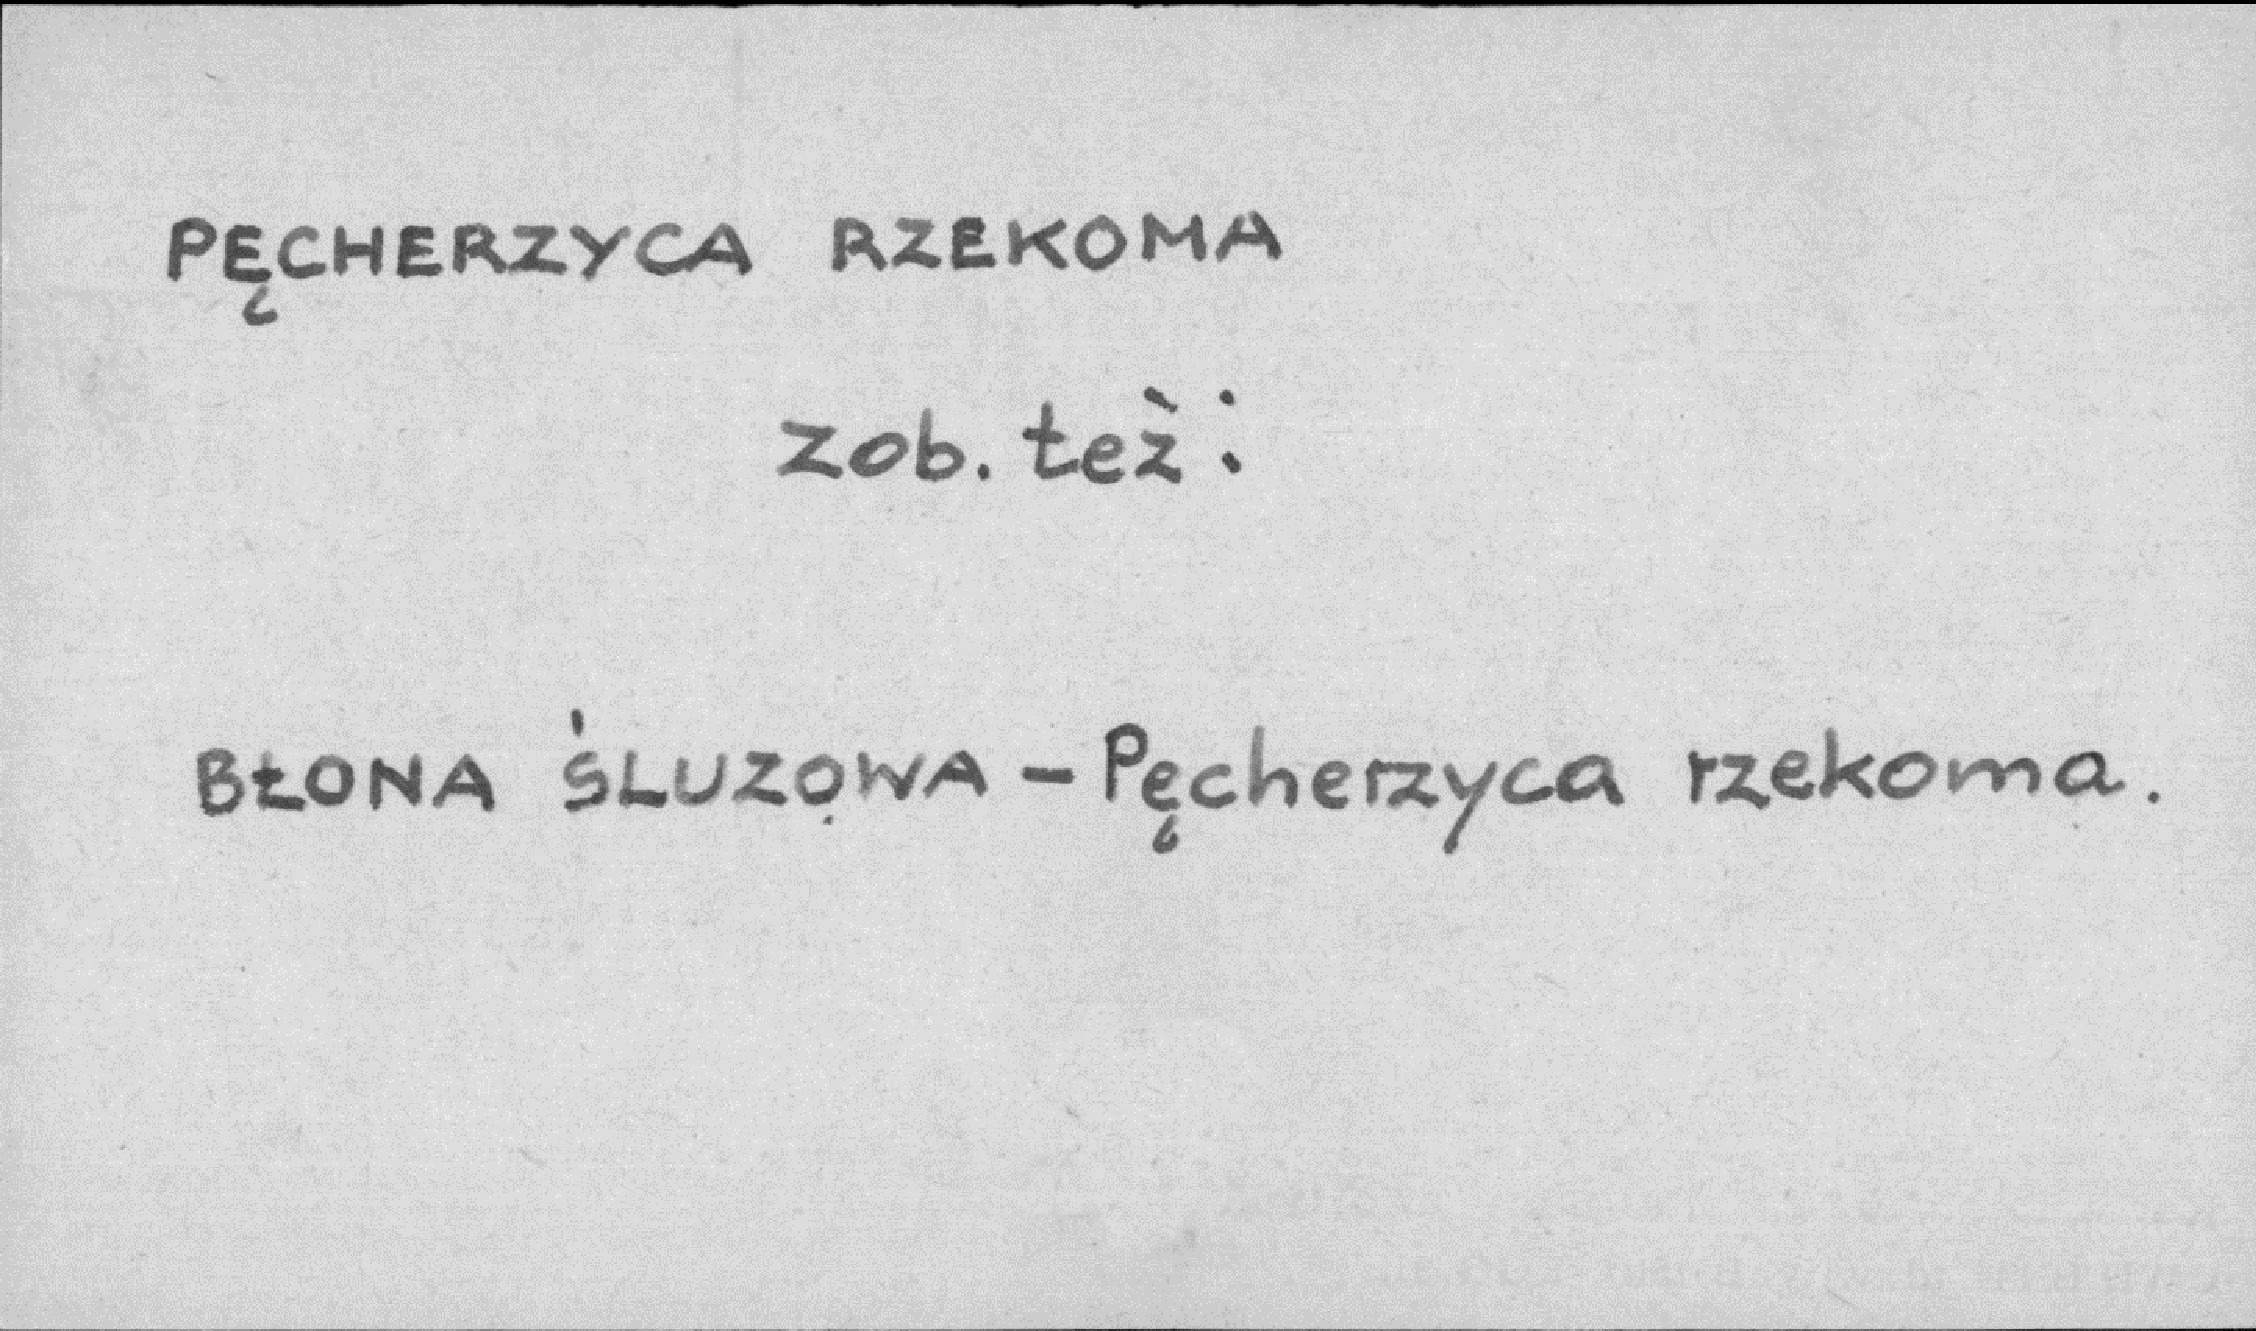 PĘCHERZYCA RZEKOMA
zob. też:
BŁONA ŚLUZOWA - Pęcherzyca rzekoma.